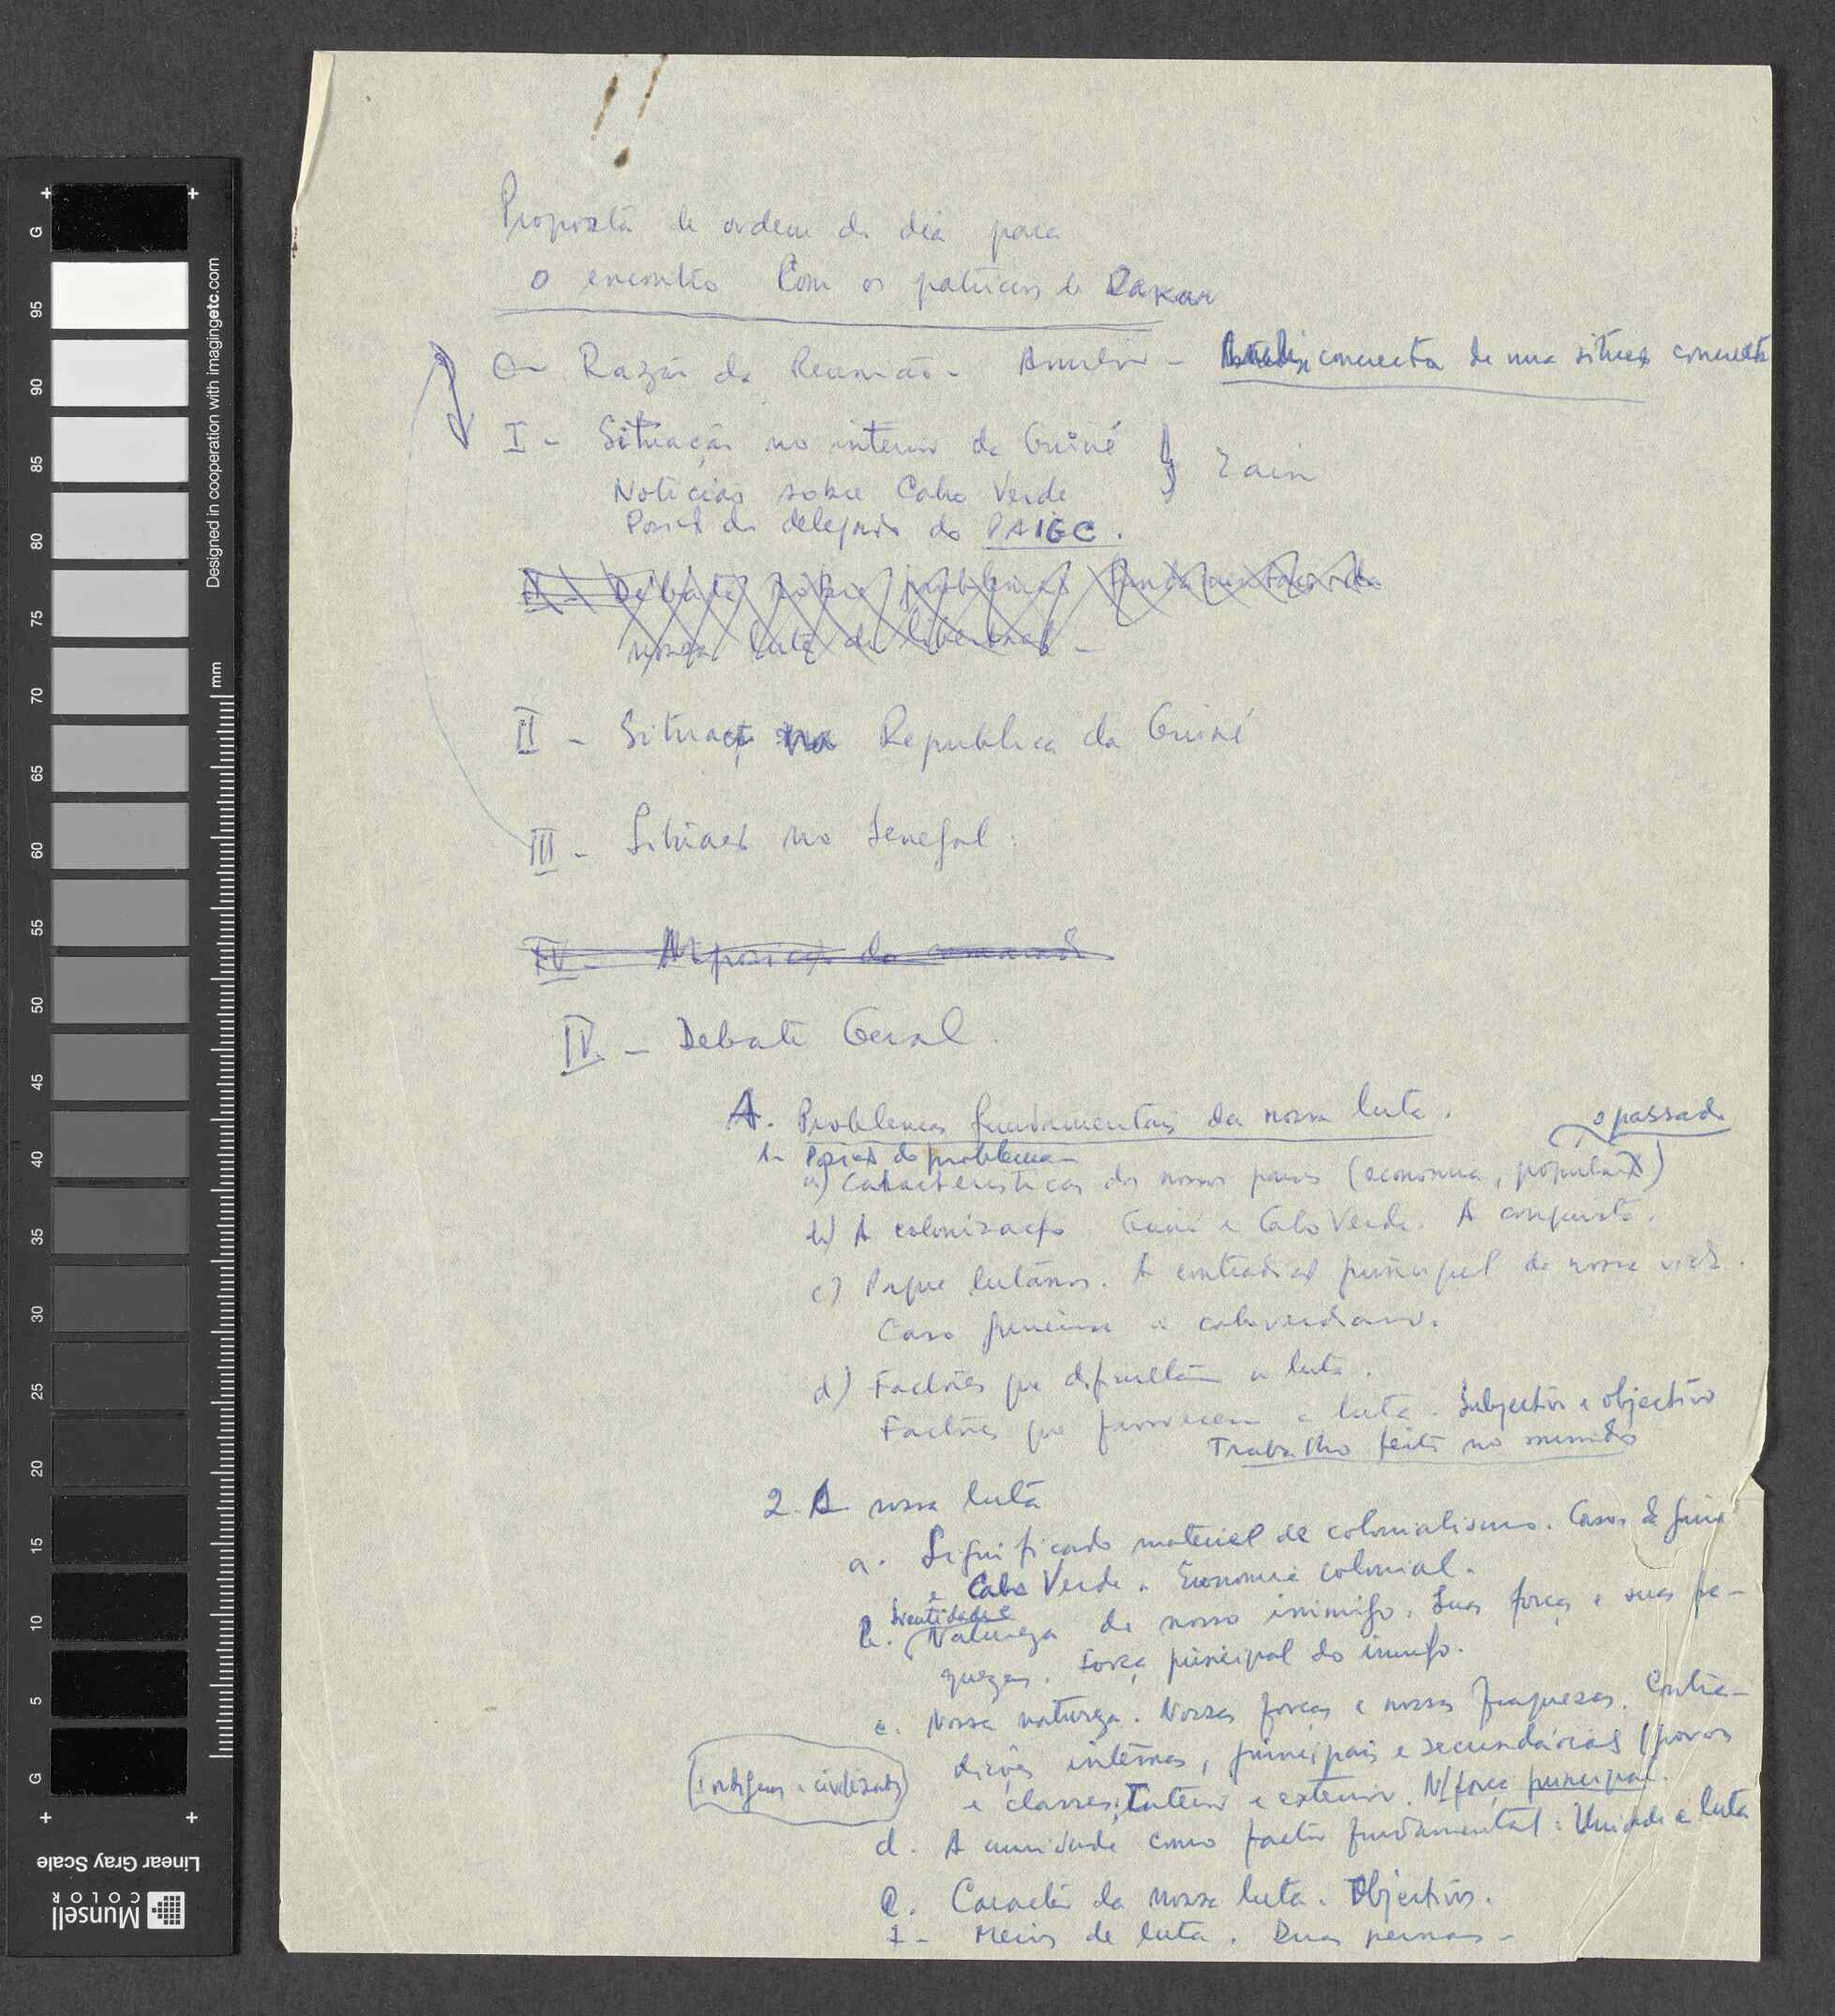 Proposta de ordem do dia para
o encontro com os patrícios de Dakar
O - Razão da Reunião - Amílcar - Análise concreta de uma situação concreta
I - Situação no interior da Guiné
Zain
Notícias sobre Cabo Verde
Posição da delegação do PAIGC.
II - Debate sobre problemas fundamentais da
nossa luta de libertação -
II - Situação na Republica da Guiné
III - Situação no Senegal.
IV - da
IV. - Debate Geral.
A. Problemas fundamentais da nossa luta.
o passado
1- Posição do problema
a) Características dos nossos países (economia, população)
b) A colonização Guiné e Cabo Verde. A conquista.
c) Porque lutámos. A contradição principal da nossa vida.
Caso guineense e caboverdiano.
d) Factores que dificultam a luta.
Factores que favorecem a luta. Subjectivo e objectivo
Trabalho feito no mundo
2. A nossa luta
a. Significado material de colonialismo. Casos da Guiné
e Cabo Verde. Economia colonial.
Identidade e
b. Natureza do nosso inimigo. Suas forças e suas fra-
quezas. Força principal do inimigo.
c. Nossa natureza. Nossas forças e nossas fraquezas. Contra-
dições internas, principais e secundárias (povos
(indígenas e civilizados)
e classes. Interior e exterior. N/força principal.
d. A unidade como factor fundamental: Unidade e luta
e. Caracter da nossa luta. Objectivos.
f - Meios de luta. Duas pernas -
Designed in cooperation with imagingetc.com
mm
G 95 90 85 80 75 70 65 60 55 50 45 40 35 30 25 20 15 10 5 G
Linear Gray Scale
Munsell
COLOR